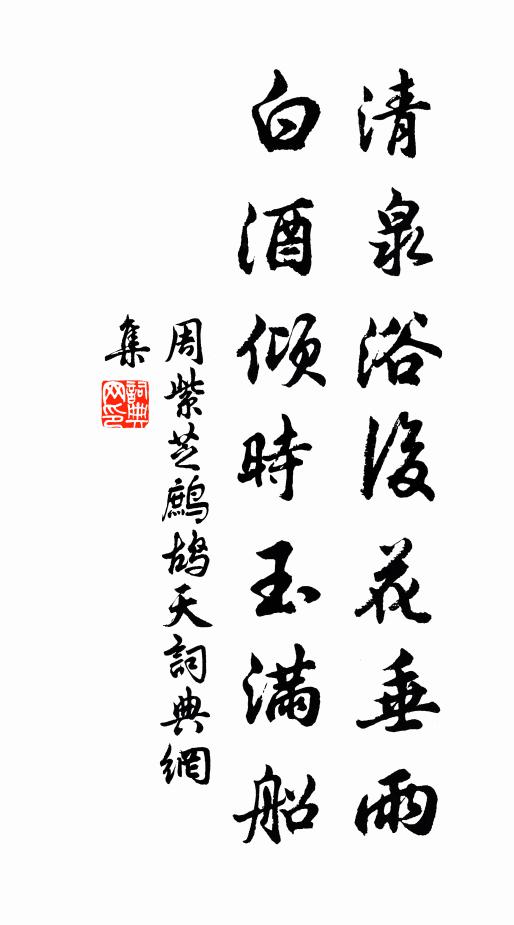 清泉浴後花垂雨
白酒傾時玉滿船
周紫芝鷓鴣天詞典網
集
詞典
网印